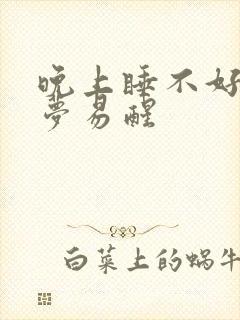 晚上睡不好
梦易醒
白菜上的蜗牛